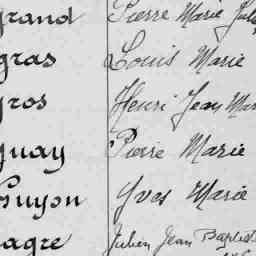 grand Pierre Marie Jule
gras Louis Marie
ros Henri Jean Mar
uay Pierre Marie
Guyon Yves Marie
agre Julien Jean Baptist